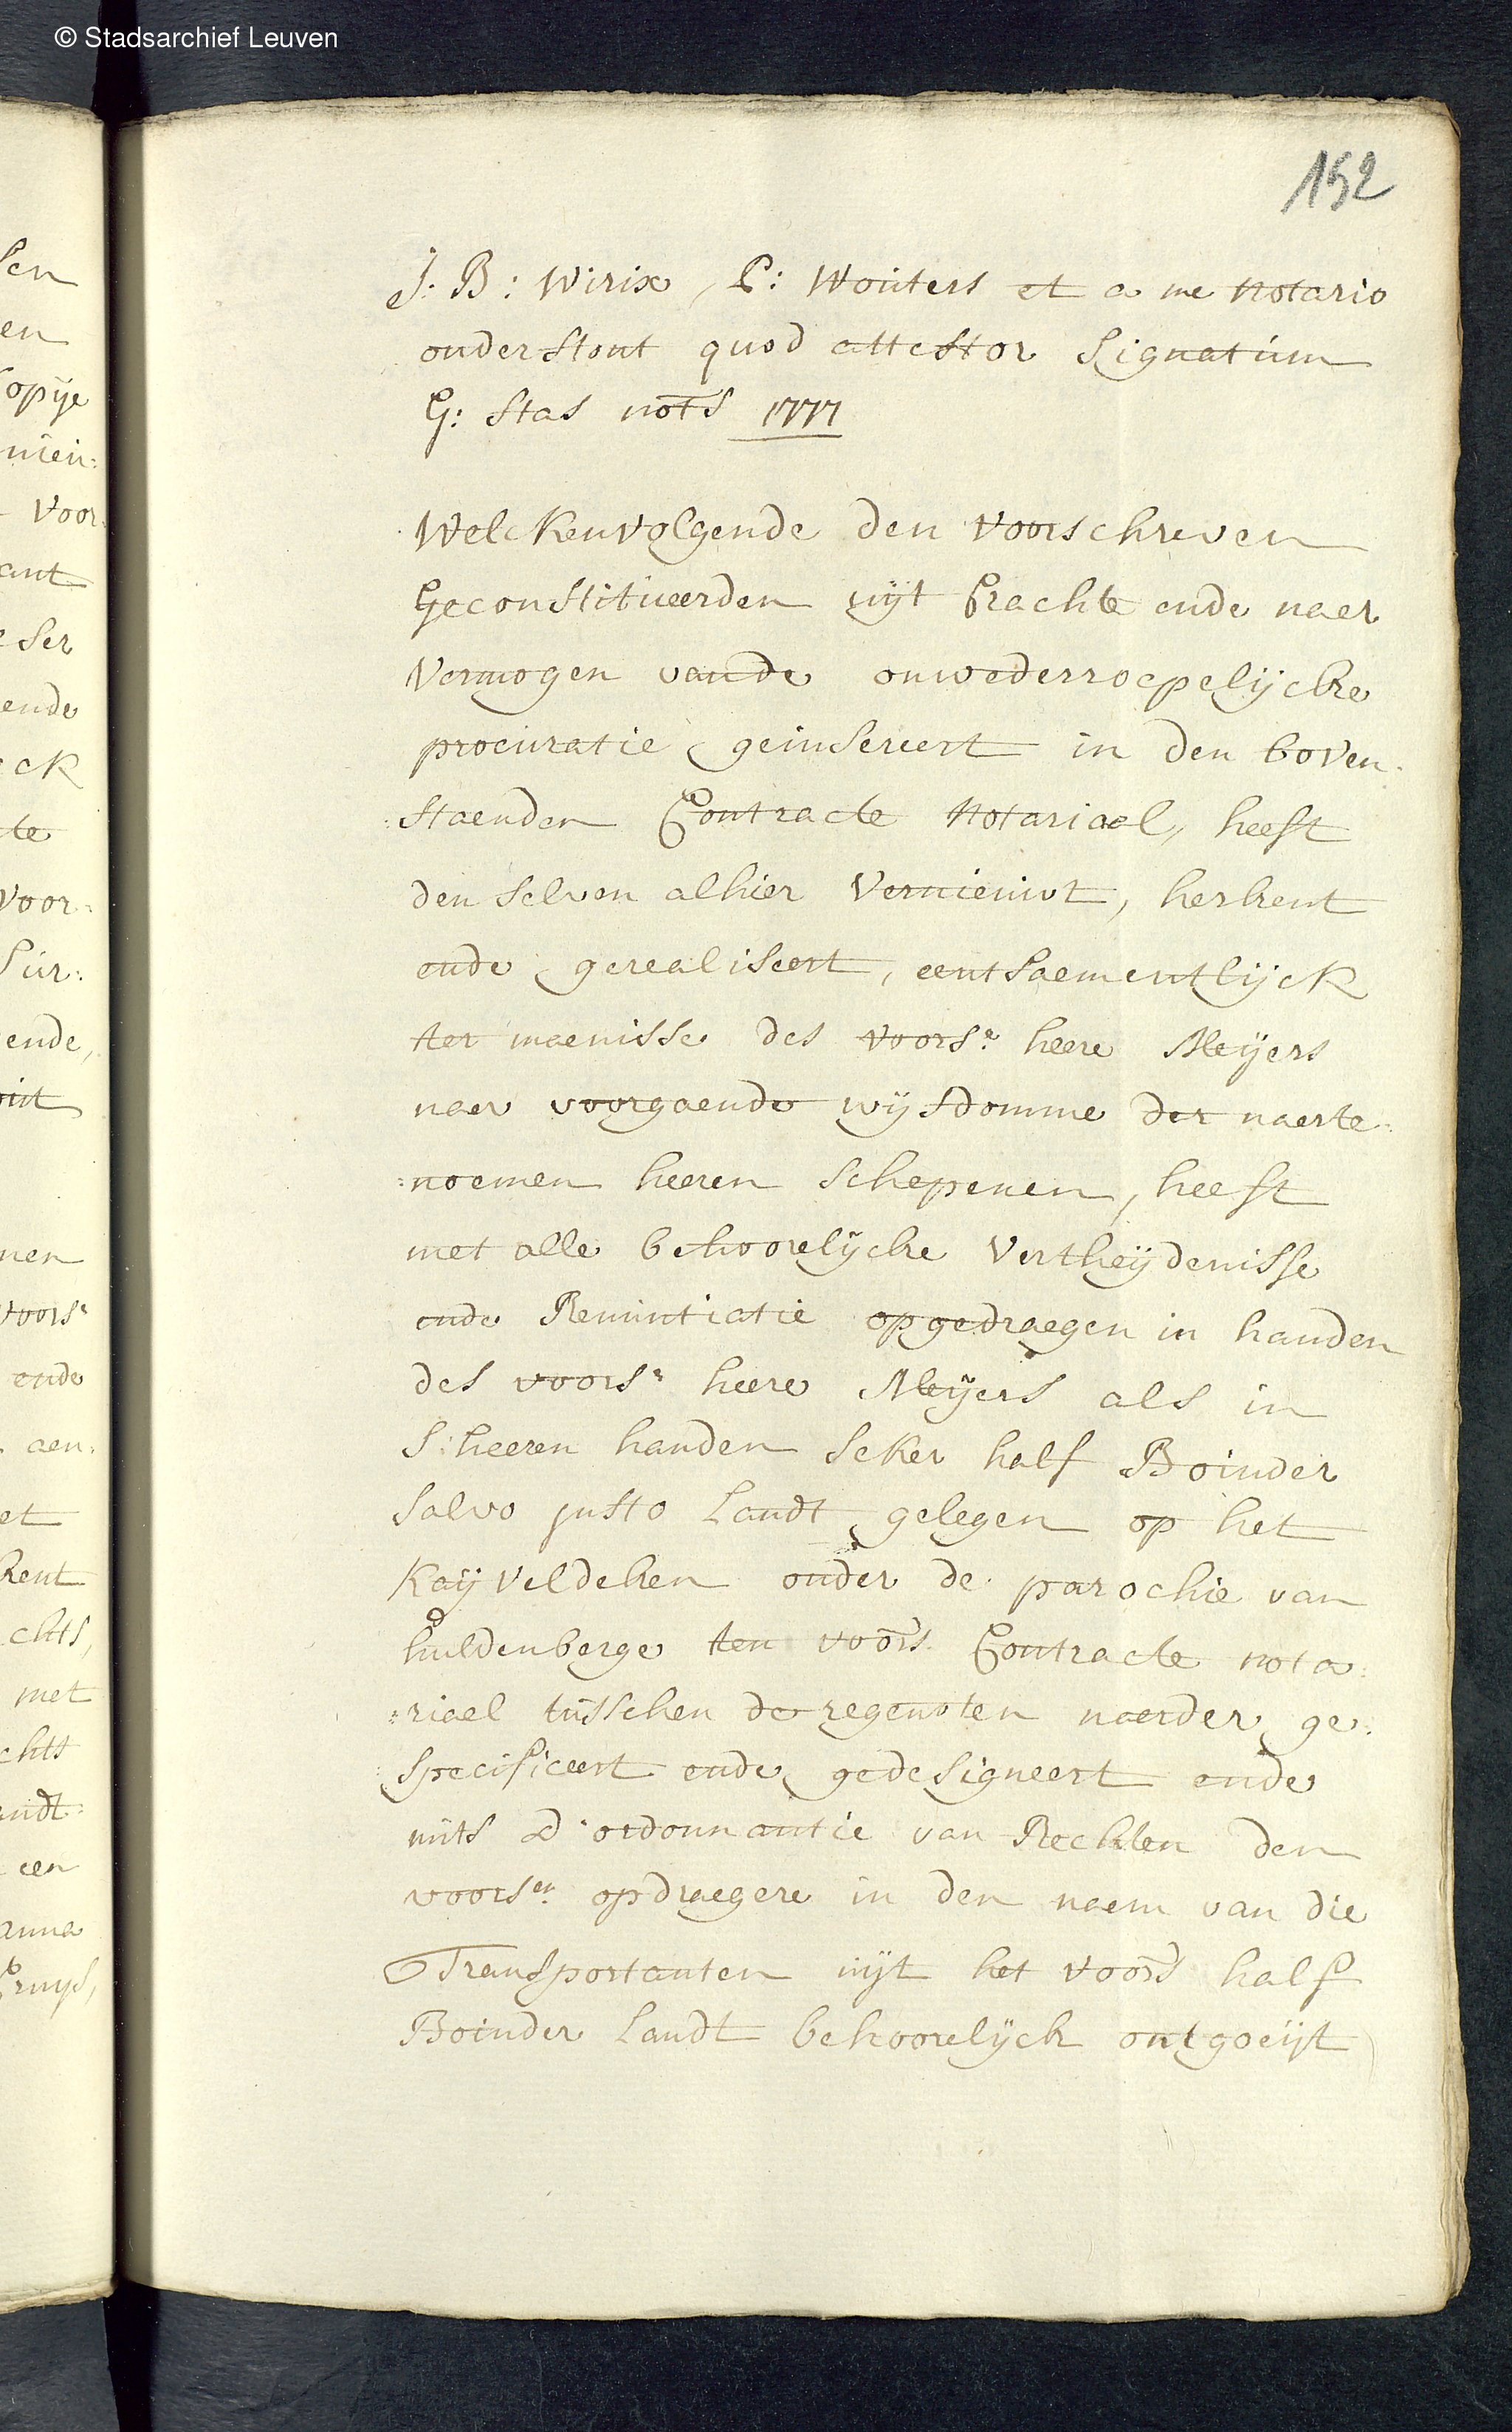 © Stadsarchief Leuven
152
J: B: Wirix, P: Wouters et a me Notario
onderstont quod attestor Signatum
G: Stas nots 1777
Welckenvolgende den voorschreven
Geconstitueerden uijt Crachte ende naer
Vermogen vande onwederroepelijcke
procuratie geinsereert in den boven-
:staenden Contracte Notariael, heeft
den selven alhier Vernieuwt, herkent
ende gerealiseert, eentsaementlijck
ter maenisse des voorsr heere Meijers
naer voorgaende wijsdomme der naerte-
:noemen heeren Schepenen, heeft
met alle behoorelijcke Vertheijdenisse
ende Renuntiatie opgedraegen in handen
des voorsr heere Meijers als in
S:heeren handen seker half Boinder
Salvo justo Landt gelegen op het
Kaijveldeken onder de parochie van
huldenberge ten voors. Contracte nota:
:riael tusschen de regenoten naerder ge:
:specificeert ende gedesigneert ende
mits d'ordonnantie van Rechten den
voorsen opdraegere in den naem van die
Transportanten uijt het voors half
Boinder Landt behoorelijck ontgoeijt
sen
en
Copije
voor:
ant
eser
ende
ck
te
voor:
Sur:
ende,
nen
voorsr
ende
aen:
et
kent
chts,
met
chts
andt:
een
anna
Cruijs,